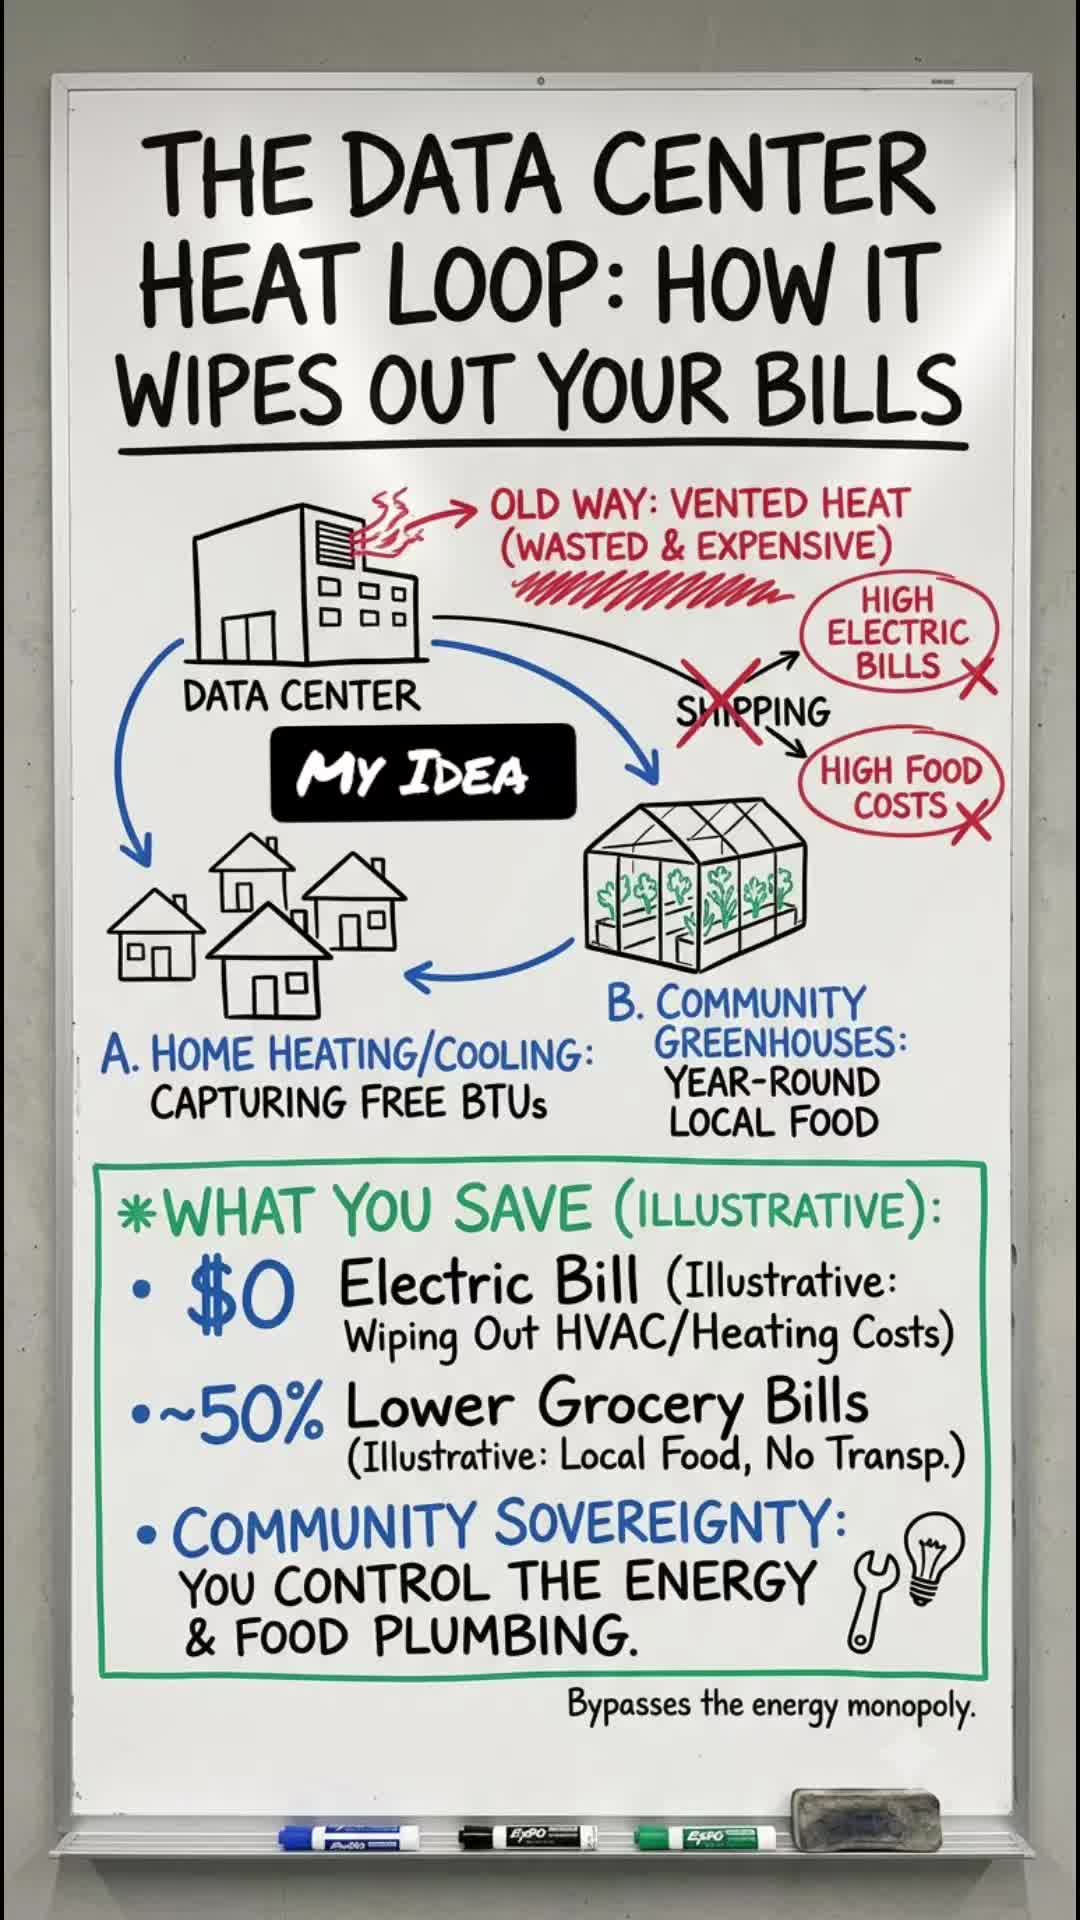 THE DATA CENTER
HEAT LOOP: HOW IT
WIPES OUT YOUR BILLS
OLD WAY: VENTED HEAT
(WASTED & EXPENSIVE)
HIGH
ELECTRIC
BILLS
SHIPPING
HIGH FOOD
COSTS
DATA CENTER
MY IDEA
A. HOME HEATING/COOLING:
CAPTURING FREE BTUs
B. COMMUNITY
GREENHOUSES:
YEAR-ROUND
LOCAL FOOD
*WHAT YOU SAVE (ILLUSTRATIVE):
• $0 Electric Bill (Illustrative:
Wiping Out HVAC/Heating Costs)
• ~50% Lower Grocery Bills
(Illustrative: Local Food, No Transp.)
• COMMUNITY SOVEREIGNTY:
YOU CONTROL THE ENERGY
& FOOD PLUMBING.
Bypasses the energy monopoly.
EXPO
EXPO